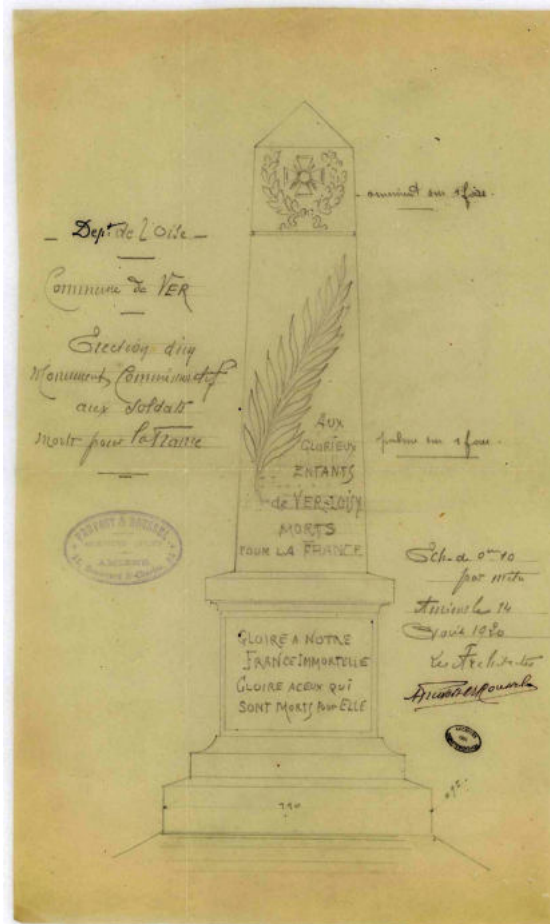 Dept de l'Oise
Commune de VER
Erection d'un
Monument Commémoratif
aux soldats
morts pour la France
ornement sur 1 face.
palme sur 1 face.
AUX
GLORIEUX
ENFANTS
de VER-LOISY
MORTS
POUR LA FRANCE
GLOIRE A NOTRE
FRANCE IMMORTELLE
GLOIRE A CEUX QUI
SONT MORTS POUR ELLE
AMIENS
Ech. de 0m10
par mètre
Amiens le 14
Avril 1920
Les Architectes